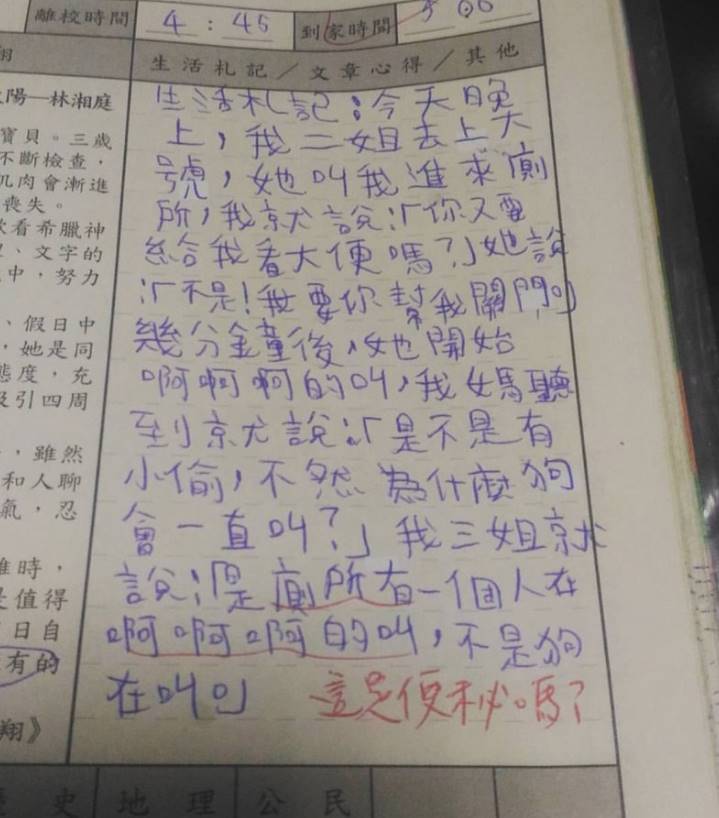 離校時間 4:45 到家時間 5:00
生活札記／文章心得／其他
陽—林湘庭
寶貝。三歲
不斷檢查，
肌肉會漸進
喪失。
看希臘神
、文字的
中，努力
、假日中
，她是同
態度，充
吸引四周
，雖然
和人聊
氣，忍
難時，
是值得
日自
有的
翔》
生活札記：今天晚
上，我三姐去上大
號，她叫我進來廁
所，我就說：「你又要
給我看大便嗎？」她說
：「不是！我要你幫我關門。」
幾分金童後，她開始
啊啊啊的叫，我媽聽
到就說：「是不是有
小偷，不然為什麼狗
會一直叫？」我三姐就
說：「是廁所有一個人在
啊啊啊的叫，不是狗
在叫。」 這是便秘嗎？
歷史 地理 公民